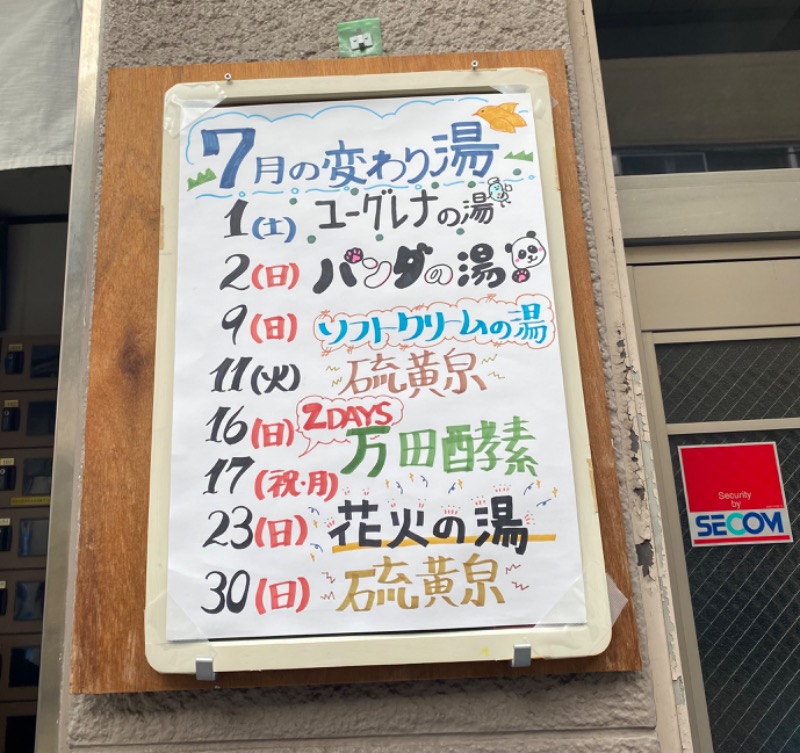 7月の変わり湯
1(土) ユーグレナの湯
2(日) パンダの湯
9(日) ソフトクリームの湯
11(火) 硫黄泉
16(日) 2DAYS
万田酵素
17(祝・月)
23(日) 花火の湯
30(日) 硫黄泉
Security
by
SECOM